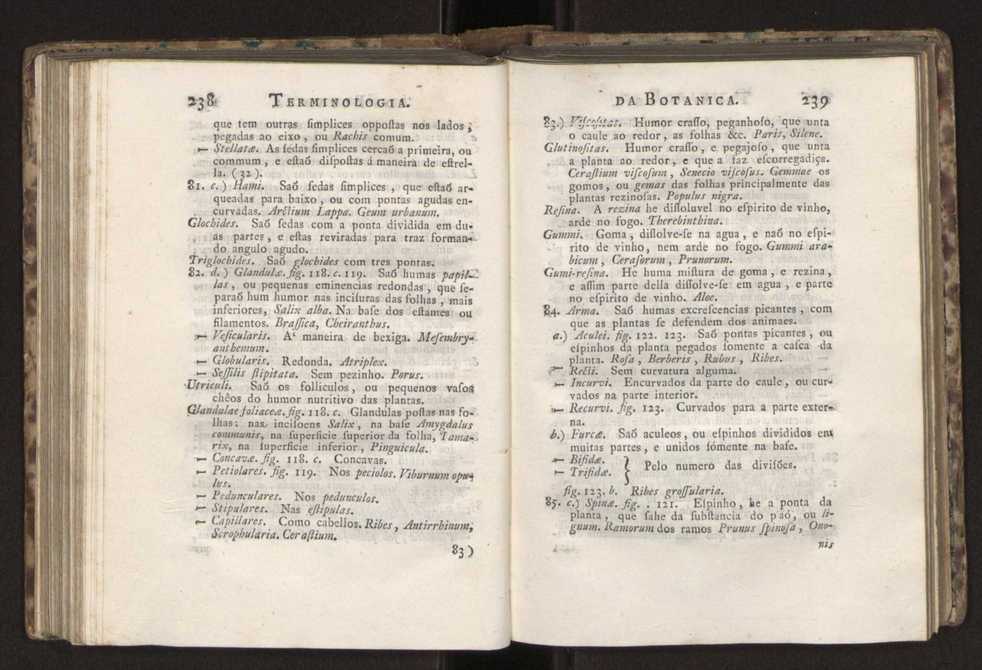 238 TERMINOLOGIA.
que tem outras ſimplices oppoſtas nos lados,
pegadas ao eixo, ou Rachis comum.
— Stellatæ. As ſedas ſimplices cercaõ a primeira, ou
commum, e eſtaõ diſpoſtas á maneira de eſtrel-
la. (32).
81. c.) Hami. Saõ ſedas ſimplices, que eſtaõ ar-
queadas para baixo, ou com pontas agudas en-
curvadas. Arctium Lappa. Geum urbanum.
Glochides. Saõ ſedas com a ponta dividida em du-
as partes, e eſtas reviradas para traz forman-
do angulo agudo.
Triglochides. Saõ glochides com tres pontas.
82. d.) Glandulæ. fig. 118. c. 119. Saõ humas papil-
las, ou pequenas eminencias redondas, que ſe-
paraõ hum humor nas inciſuras das folhas, mais
inferiores, Salix alba. Na baſe dos eſtames ou
filamentos. Braſſica, Cheiranthus.
— Veſicularis. A' maneira de bexiga. Meſembry-
anthemum.
— Globularis. Redonda. Atriplex.
— Seſſilis ſtipitata. Sem pezinho. Porus.
Utriculi. Saõ os folliculos, ou pequenos vaſos
chêos do humor nutritivo das plantas.
Glandulae foliaceæ. fig. 118. c. Glandulas poſtas nas fo-
lhas: nas inciſoens Salix, na baſe Amygdalus
communis, na ſuperficie ſuperior da folha, Tama-
rix, na ſuperficie inferior, Pinguicula.
— Concavæ. fig. 118. c. Concavas.
— Petiolares. fig. 119. Nos peciolos. Viburnum opu-
lus.
— Pedunculares. Nos pedunculos.
— Stipulares. Nas eſtipulas.
— Capillares. Como cabellos. Ribes, Antirrhinum,
Scrophularia. Ceraſtium.
83)
DA BOTANICA. 239
83.) Viſcoſitas. Humor craſſo, peganhoſo, que unta
o caule ao redor, as folhas &c. Paris, Silene.
Glutinoſitas. Humor craſſo, e pegajoſo, que unta
a planta ao redor, e que a faz eſcorregadiça.
Ceraſtium viſcoſum, Senecio viſcoſus. Gemmae os
gomos, ou gemas das folhas principalmente das
plantas rezinoſas. Populus nigra.
Reſina. A rezina he diſſoluvel no eſpirito de vinho,
arde no fogo. Therebinthina.
Gummi. Goma, diſſolve-ſe na agua, e naõ no eſpi-
rito de vinho, nem arde no fogo. Gummi ara-
bicum, Ceraſorum, Prunorum.
Gumi-reſina. He huma miſtura de goma, e rezina,
e aſſim parte della diſſolve-ſe em agua, e parte
no eſpirito de vinho. Aloe.
84. Arma. Saõ humas excreſcencias picantes, com
que as plantas ſe defendem dos animaes.
a.) Aculei. fig. 122. 123. Saõ pontas picantes, ou
eſpinhos da planta pegados ſomente a caſca da
planta. Roſa, Berberis, Rubus, Ribes.
— Recti. Sem curvatura alguma.
— Incurvi. Encurvados da parte do caule, ou cur-
vados na parte interior.
— Recurvi. fig. 123. Curvados para a parte exter-
na.
b.) Furcæ. Saõ aculeos, ou eſpinhos divididos em
muitas partes, e unidos ſómente na baſe.
— Bifidæ. } Pelo numero das diviſões.
— Trifidæ.
fig. 123. b. Ribes groſſularia.
85. c.) Spinæ. fig. . 121. Eſpinho, he a ponta da
planta, que ſahe da ſubſtancia do páo, ou li-
gnum. Ramorum dos ramos Prunus ſpinoſa, Ono-
nis